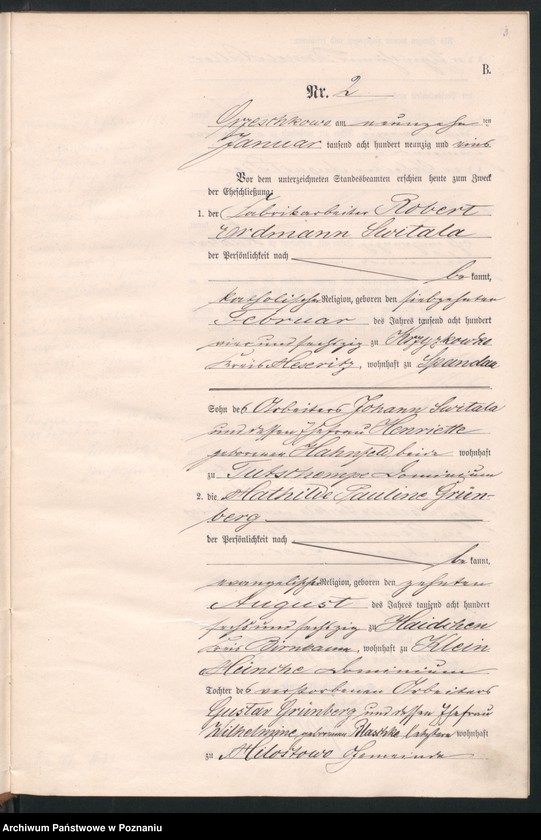 3
B.
Nr. 2
am neunzehn ten
Januar tausend acht hundert neunzig und eins
Vor dem unterzeichneten Standesbeamten erschien heute zum Zweck
der Eheschließung:
1. der Fabrikarbeiter Robert
Erdmann Switala
der Persönlichkeit nach
be kannt,
katholischer Religion, geboren den siebzehnten
Februar des Jahres tausend acht hundert
vier und sechzig zu
Kreis Meseritz, wohnhaft zu Spandau
Sohn des Arbeiters Johann Switala
und dessen Ehefrau Henriette
geborenen Hahnfeld beide wohnhaft
zu Dominium
2. die Mathilde Pauline Grün-
berg
der Persönlichkeit nach
be kannt,
evangelischer Religion, geboren den zehnten
August des Jahres tausend acht hundert
sechs und sechzig zu Haidchen
Kreis Birnbaum, wohnhaft zu Klein
Dominium
Tochter des verstorbenen Arbeiters
Gustav Grünberg und dessen Ehefrau
Wilhelmine geborenen Blaschke letztere wohnhaft
zu Milostowo Gemeinde
Archiwum Państwowe w Poznaniu